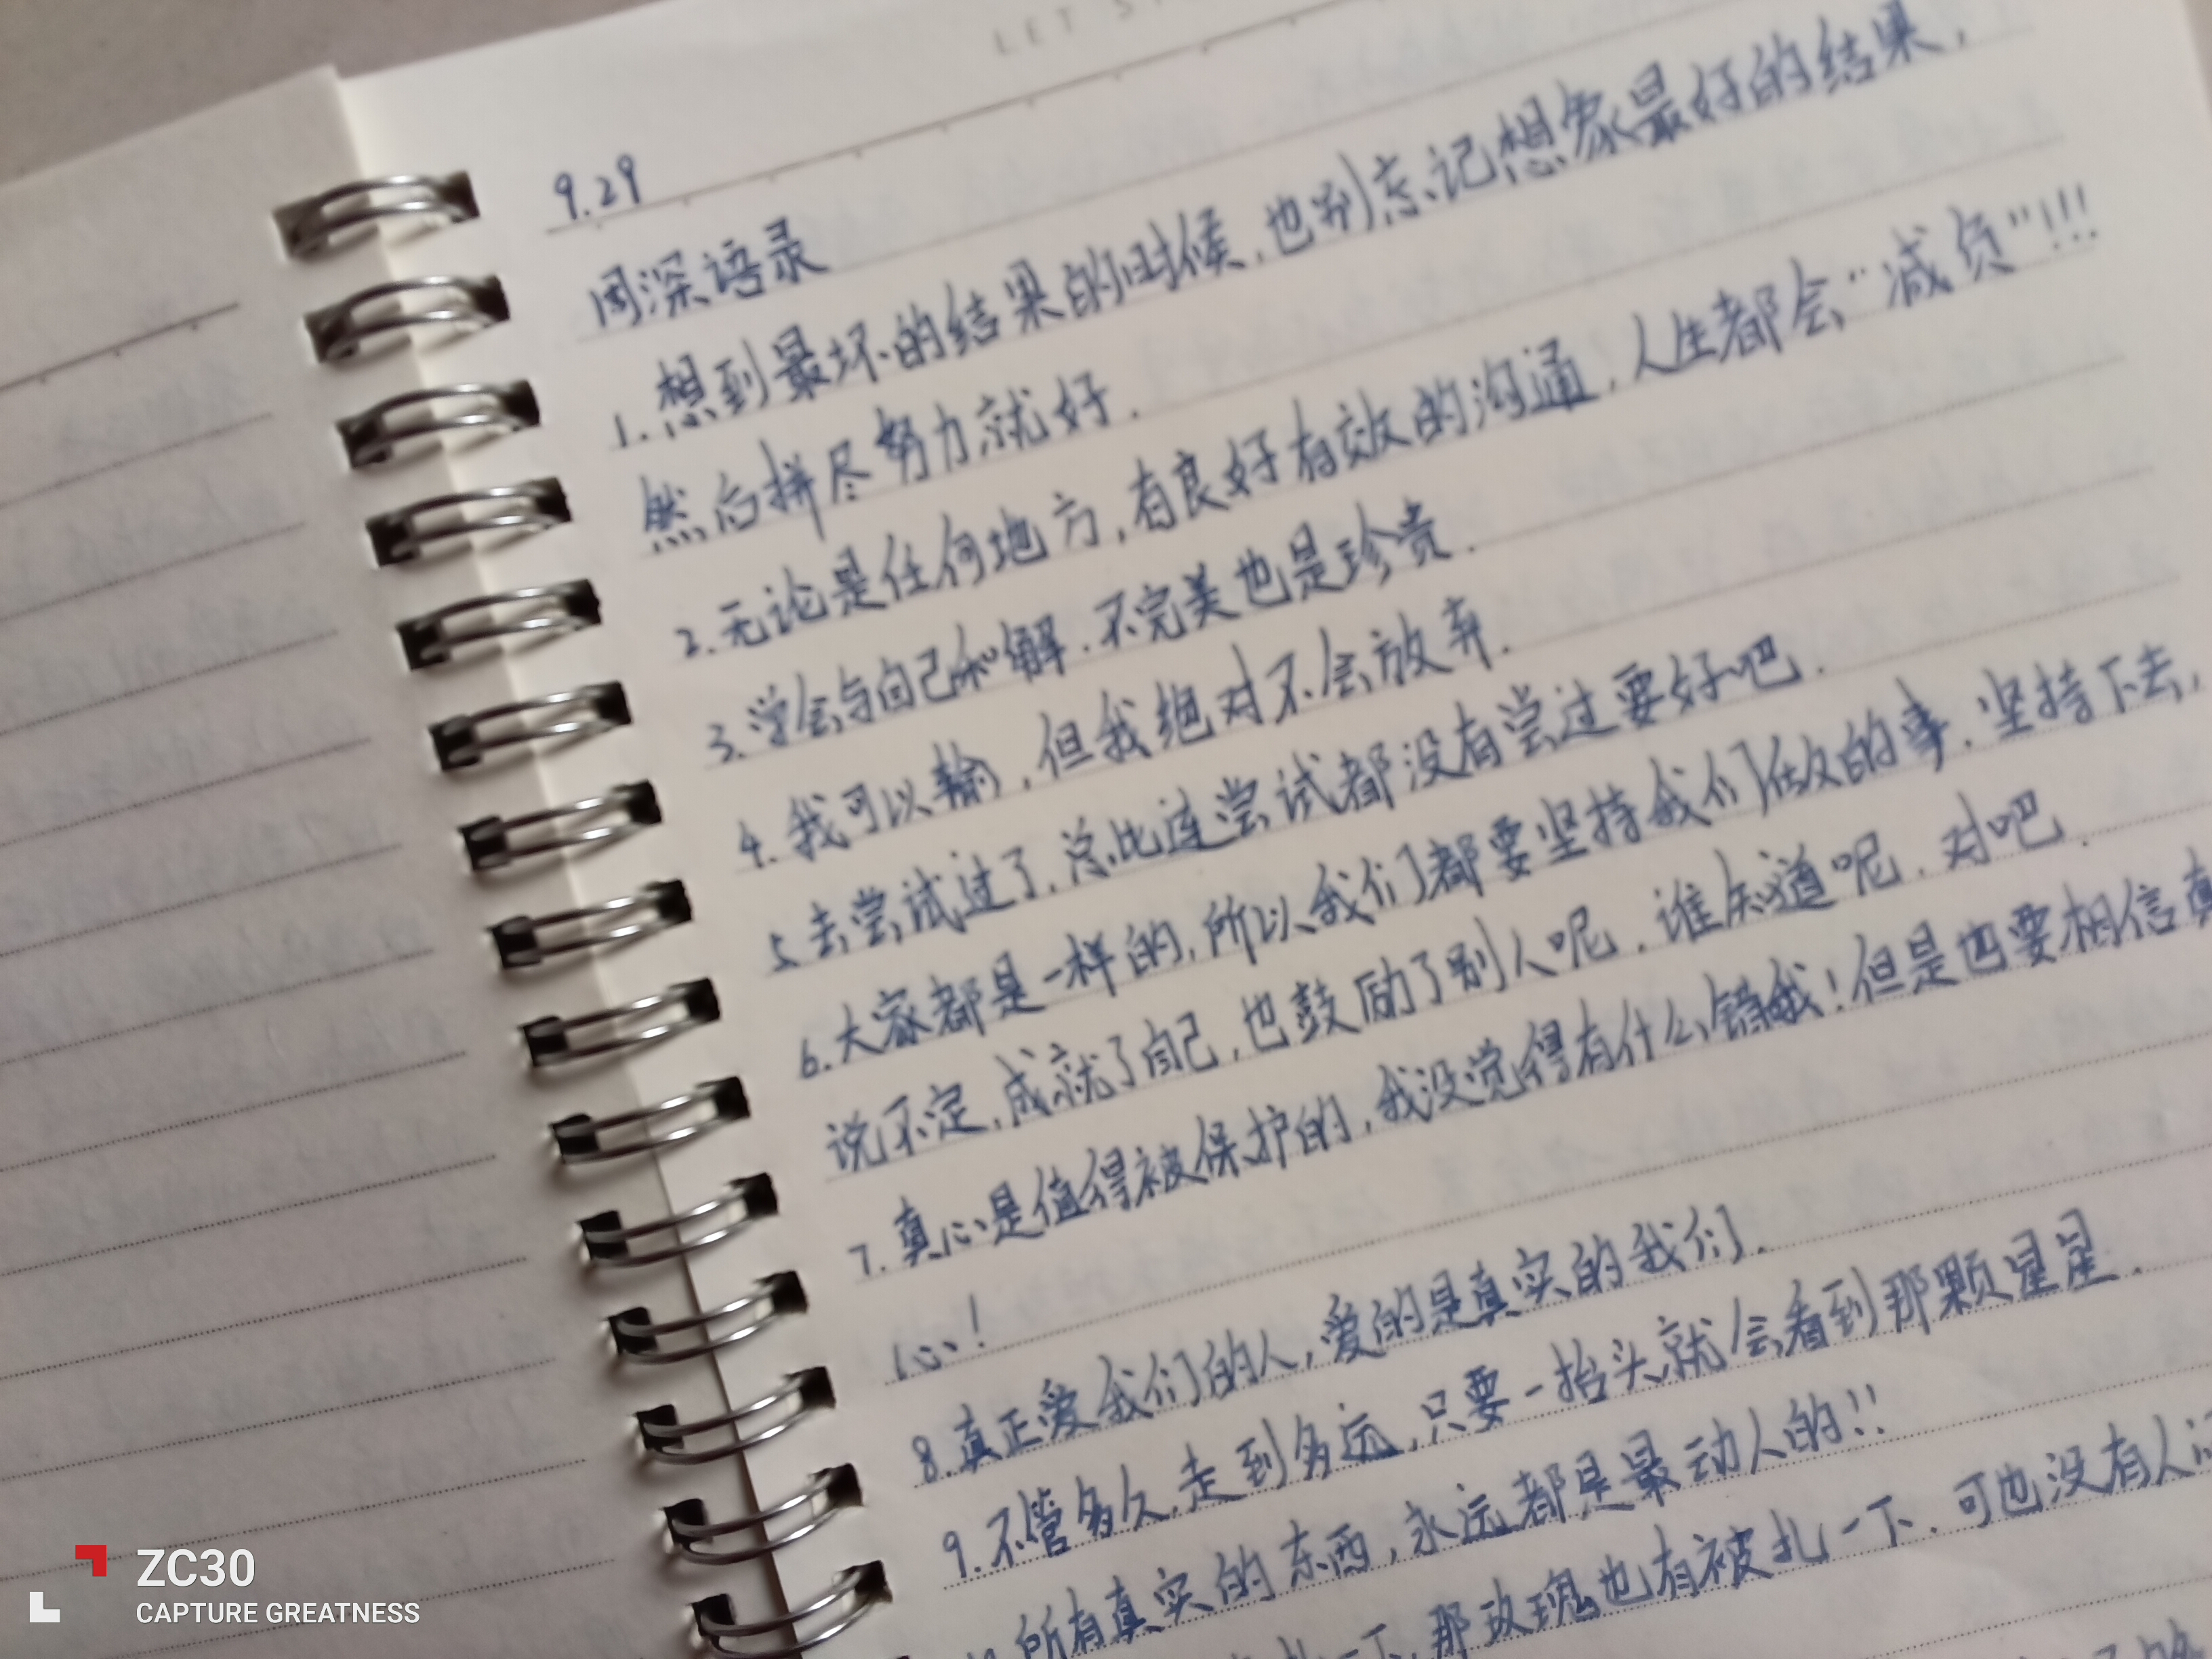 LET'S
9.29
周深语录
1. 想到最坏的结果的时候，也别忘记想象最好的结果，
然后拼尽努力就好.
2. 无论是任何地方，有良好有效的沟通，人生都会“减负”!!!
3. 学会与自己和解.不完美也是珍贵.
4. 我可以输，但我绝对不会放弃.
5. 去尝试过了，总比连尝试都没有尝过要好吧.
6. 大家都是一样的，所以我们都要坚持我们做的事.坚持下去，
说不定，成就了自己，也鼓励了别人呢，谁知道呢，对吧.
7. 真心是值得被保护的，我没觉得有什么错哦！但是也要相信真
心！
8. 真正爱我们的人，爱的是真实的我们.
9. 不管多久，走到多远，只要一抬头就会看到那颗星星.
所有真实的东西，永远都是最动人的!!
扎一下，那玫瑰也有被扎一下.可也没有人
ZC30
CAPTURE GREATNESS